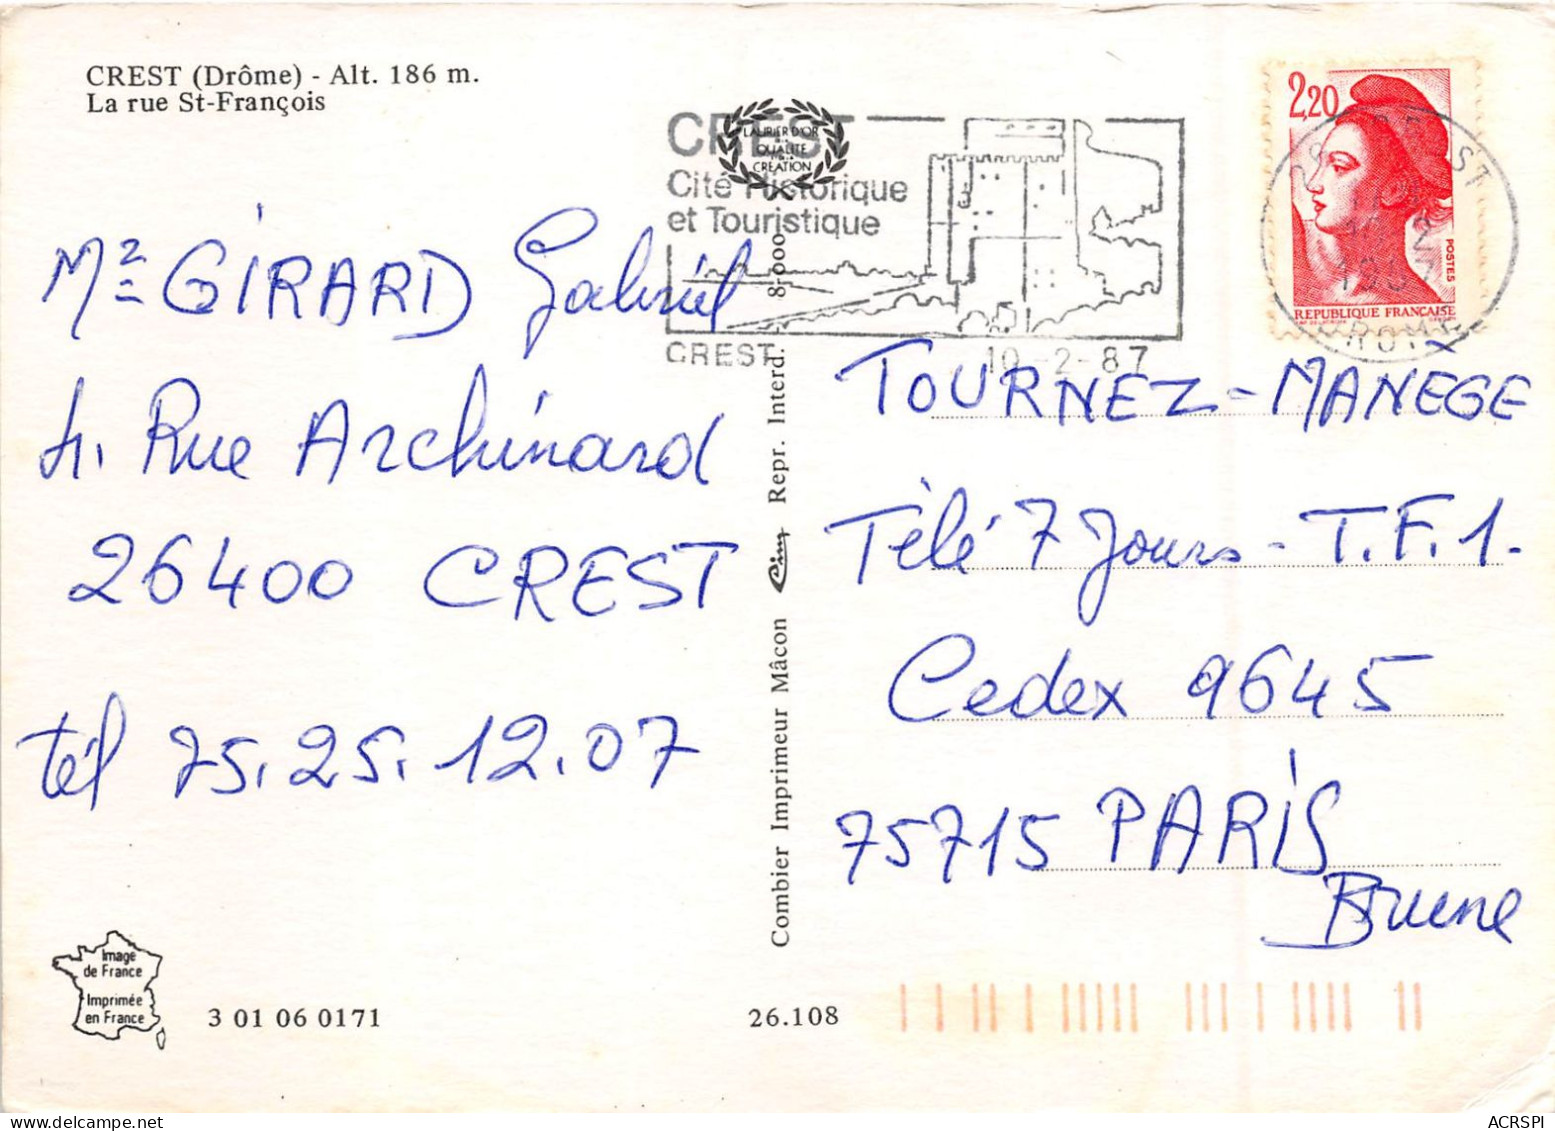 CREST (Drôme) - Alt. 186 m.
La rue St-François
CREST
Cité Historique
et Touristique
LAURIER D'OR
QUALITÉ
CRÉATION
CREST
10-2-87
2,20
POSTES
REPUBLIQUE FRANÇAISE
1987
Mr GIRARD Gabriel
4, Rue Archinard
26400 CREST
tél 75.25.12.07
Combier Imprimeur Mâcon Cim Repr. Interd. 8-000
TOURNEZ-MANÈGE
Télé 7 Jours - T.F.1.
Cedex 9645
75715 PARIS
Brune
Image
de France
Imprimée
en France
3 01 06 0171
26.108
ACRSPI